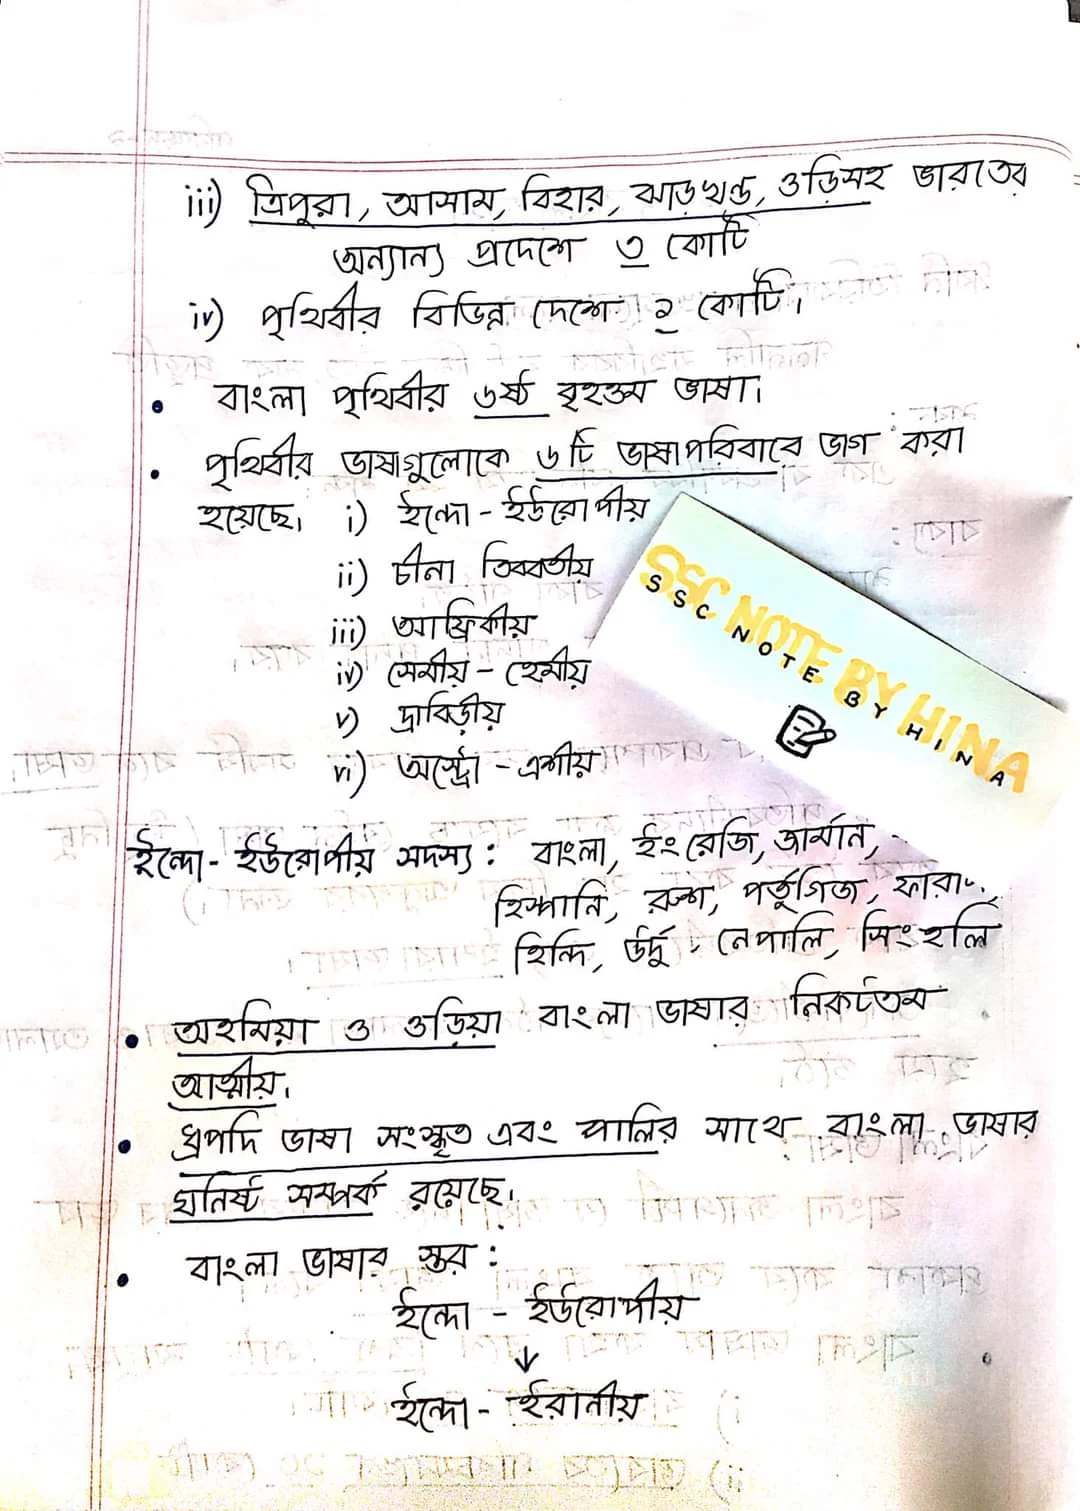 iii) ত্রিপুরা, আসাম, বিহার, ঝাড়খন্ড, ওড়িসহ ভারতের
অন্যান্য প্রদেশে ৩ কোটি
iv) পৃথিবীর বিভিন্ন দেশে ২ কোটি।
• বাংলা পৃথিবীর ৬ষ্ঠ বৃহত্তম ভাষা।
• পৃথিবীর ভাষাগুলোকে ৬টি ভাষাপরিবারে ভাগ করা
হয়েছে। i) ইন্দো - ইউরোপীয়
ii) চীনা তিব্বতীয়
iii) আফ্রিকীয়
iv) সেমীয় - হেমীয়
v) দ্রাবিড়ীয়
vi) অস্ট্রো - এশীয়
SSC NOTE BY HINA
SSC NOTE BY HINA
ইন্দো - ইউরোপীয় সদস্য : বাংলা, ইংরেজি, জার্মান,
হিস্পানি, রুশ, পর্তুগিজ,
হিন্দি, উর্দু, নেপালি, সিংহলি
• অহমিয়া ও ওড়িয়া বাংলা ভাষার নিকটতম
আত্মীয়।
• ধ্রুপদি ভাষা সংস্কৃত এবং পালির সাথে বাংলা ভাষার
ঘনিষ্ট সম্পর্ক রয়েছে।
• বাংলা ভাষার স্তর :
ইন্দো - ইউরোপীয়
↓
ইন্দো - ইরানীয়